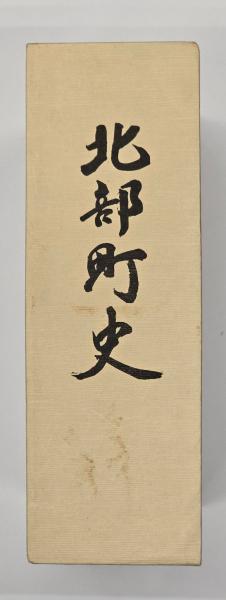 北部町史